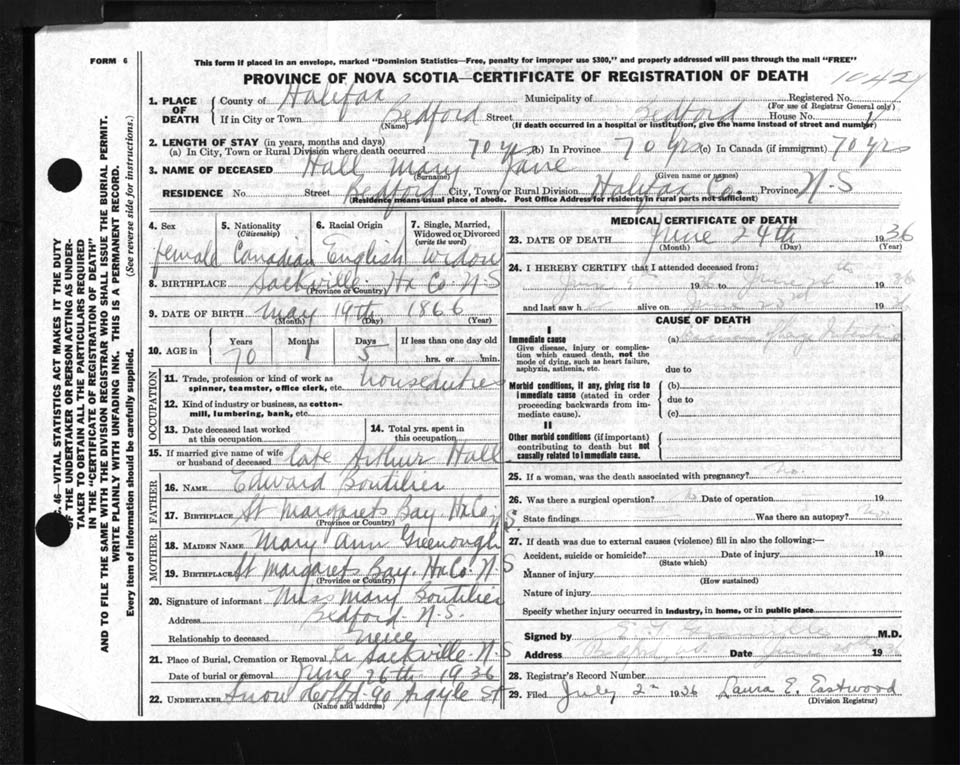 FORM 6
This form if placed in an envelope, marked "Dominion Statistics—Free, penalty for improper use $300," and properly addressed will pass through the mail "FREE"
PROVINCE OF NOVA SCOTIA—CERTIFICATE OF REGISTRATION OF DEATH
1. PLACE OF DEATH
County of Halifax Municipality of Registered No.
(For use of Registrar General only)
If in City or Town Bedford Street Bedford House No.
(Name) (If death occurred in a hospital or institution, give the name instead of street and number)
2. LENGTH OF STAY (in years, months and days)
(a) In City, Town or Rural Division where death occurred 70 yrs (b) In Province 70 yrs (c) In Canada (if immigrant) 70 yrs
3. NAME OF DECEASED Hall, Mary Jane
(Surname) (Given name or names)
RESIDENCE No. Street Bedford City, Town or Rural Division Halifax Co. Province N-S
(Residence means usual place of abode. Post Office Address for residents in rural parts not sufficient)
4. Sex 5. Nationality (Citizenship) 6. Racial Origin 7. Single, Married, Widowed or Divorced (write the word)
female Canadian English Widow
8. BIRTHPLACE Sackville Hx Co. N-S
(Province or Country)
9. DATE OF BIRTH May 19th 1866
(Month) (Day) (Year)
10. AGE in Years Months Days If less than one day old
70 1 5 hrs. or min.
OCCUPATION
11. Trade, profession or kind of work as spinner, teamster, office clerk, etc. houseduties
12. Kind of industry or business, as cotton-mill, lumbering, bank, etc.
13. Date deceased last worked at this occupation 14. Total yrs. spent in this occupation
15. If married give name of wife or husband of deceased late Arthur Hall
FATHER
16. NAME Edward Boutilier
17. BIRTHPLACE St Margarets Bay. Hx Co. N.S.
(Province or Country)
MOTHER
18. MAIDEN NAME Mary Ann Greenough
19. BIRTHPLACE St Margarets Bay. Hx Co. N-S
(Province or Country)
20. Signature of informant Miss Mary Boutilier
Address Bedford N-S.
Relationship to deceased niece
21. Place of Burial, Cremation or Removal Lr Sackville. N-S
Date of burial or removal June 26th 1936
22. UNDERTAKER Snow & Co Ltd - 90 Argyle St
(Name and address)
MEDICAL CERTIFICATE OF DEATH
23. DATE OF DEATH June 24th 1936
(Month) (Day) (Year)
24. I HEREBY CERTIFY that I attended deceased from:
June 1936 to June 24th 1936
and last saw h alive on June 23rd 1936
CAUSE OF DEATH
I
Immediate cause
Give disease, injury or complication which caused death, not the mode of dying, such as heart failure, asphyxia, asthenia, etc.
(a) Carcinoma of large Intestine
due to
Morbid conditions, if any, giving rise to immediate cause (stated in order proceeding backwards from immediate cause).
(b)
due to
(c)
II
Other morbid conditions (if important) contributing to death but not causally related to immediate cause.
25. If a woman, was the death associated with pregnancy? No.
26. Was there a surgical operation? No Date of operation 19
State findings Was there an autopsy? No.
27. If death was due to external causes (violence) fill in also the following:—
Accident, suicide or homicide? Date of injury 19
(State which)
Manner of injury
(How sustained)
Nature of injury
Specify whether injury occurred in industry, in home, or in public place
Signed by M.D.
Address Bedford, N.S. Date June 1936
28. Registrar's Record Number
29. Filed July 2nd 1936 Laura E. Eastwood
(Division Registrar)
46—VITAL STATISTICS ACT MAKES IT THE DUTY
OF THE UNDERTAKER OR PERSON ACTING AS UNDER-
TAKER TO OBTAIN ALL THE PARTICULARS REQUIRED
IN THE "CERTIFICATE OF REGISTRATION OF DEATH"
AND TO FILE THE SAME WITH THE DIVISION REGISTRAR WHO SHALL ISSUE THE BURIAL PERMIT.
WRITE PLAINLY WITH UNFADING INK. THIS IS A PERMANENT RECORD.
Every item of information should be carefully supplied. (See reverse side for instructions.)